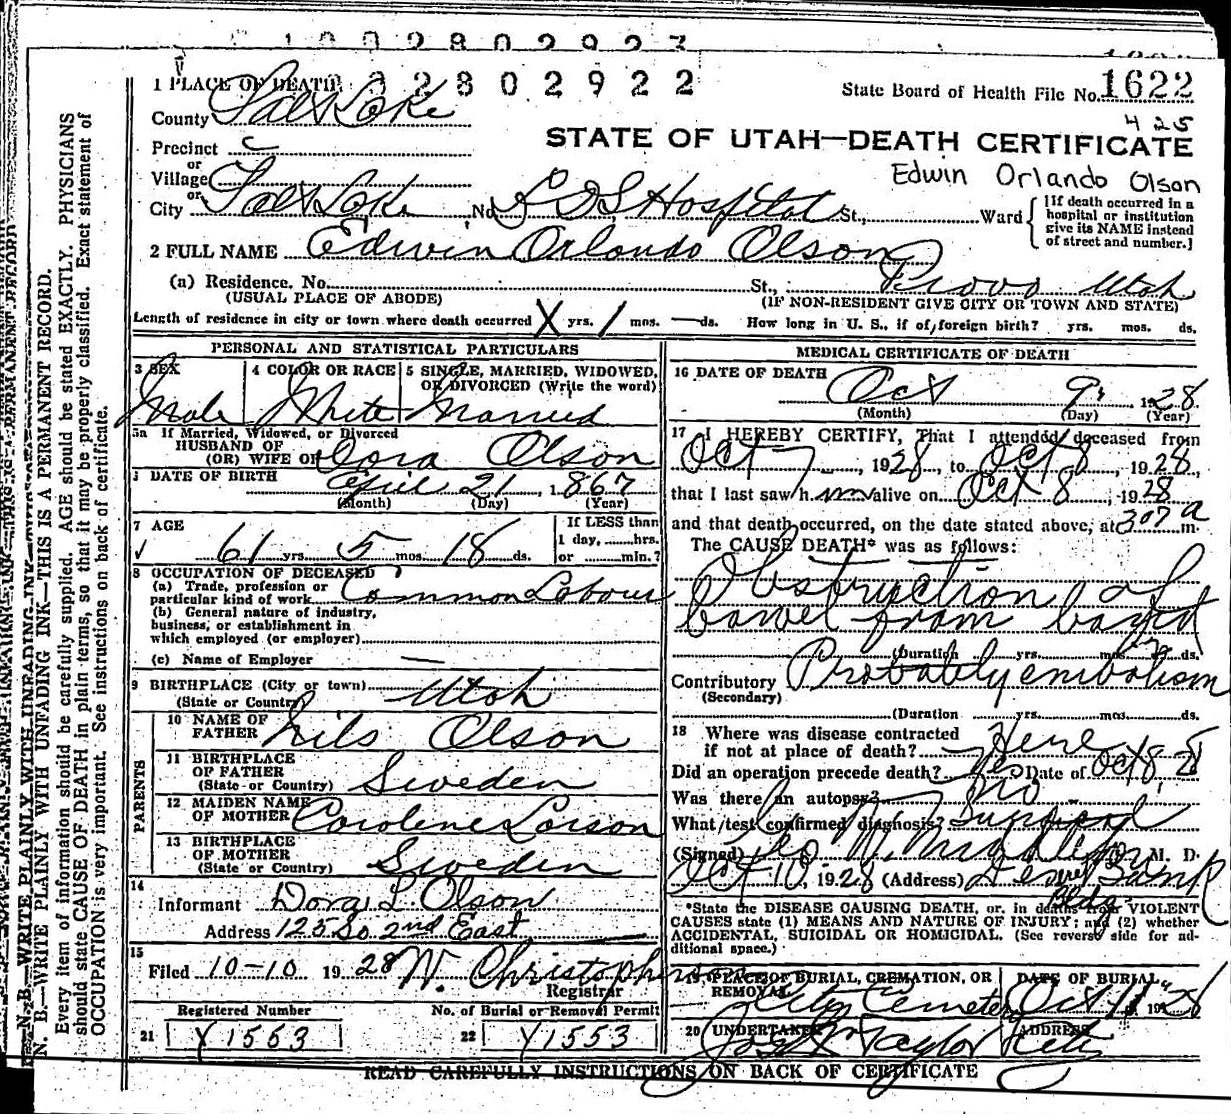 1002802923
1 PLACE OF DEATH 2802922
State Board of Health File No. 1622
County Salt Lake
425
STATE OF UTAH—DEATH CERTIFICATE
Precinct
or
Village
Edwin Orlando Olson
or
City Salt Lake No. LDS Hospital St., Ward
[If death occurred in a hospital or institution give its NAME instead of street and number.]
2 FULL NAME Edwin Orlando Olson
(a) Residence. No. St., Provo Utah
(USUAL PLACE OF ABODE) (IF NON-RESIDENT GIVE CITY OR TOWN AND STATE)
Length of residence in city or town where death occurred X yrs. 1 mos. — ds. How long in U. S., if of foreign birth? yrs. mos. ds.
PERSONAL AND STATISTICAL PARTICULARS
3 SEX 4 COLOR OR RACE 5 SINGLE, MARRIED, WIDOWED, OR DIVORCED (Write the word)
Male White Married
5a If Married, Widowed, or Divorced
HUSBAND OF
(OR) WIFE OF Olson
6 DATE OF BIRTH April 21, 1867
(Month) (Day) (Year)
7 AGE
61 yrs. 5 mos. 18 ds.
If LESS than 1 day, hrs. or min.?
8 OCCUPATION OF DECEASED
(a) Trade, profession or
particular kind of work Common Labour
(b) General nature of industry,
business, or establishment in
which employed (or employer)
(c) Name of Employer —
9 BIRTHPLACE (City or town)
(State or Country) Utah
PARENTS
10 NAME OF
FATHER Nils Olson
11 BIRTHPLACE
OF FATHER
(State or Country) Sweden
12 MAIDEN NAME
OF MOTHER Carolene Larson
13 BIRTHPLACE
OF MOTHER
(State or Country) Sweden
14
Informant Dora L Olson
Address 125 So 2nd East
15
Filed 10-10 1928 W. Christopherson
Registrar
Registered Number No. of Burial or Removal Permit
21 Y1553 22 Y1553
MEDICAL CERTIFICATE OF DEATH
16 DATE OF DEATH Oct 9, 1928
(Month) (Day) (Year)
17 I HEREBY CERTIFY, That I attended deceased from
Oct 7, 1928, to Oct 8, 1928
that I last saw him alive on Oct 8, 1928
and that death occurred, on the date stated above, at 307 a m.
The CAUSE DEATH* was as follows:
Obstruction of
bowel from
(Duration yrs. mos. ds.
Contributory Probably embolism
(Secondary)
(Duration yrs. mos. ds.
18 Where was disease contracted
if not at place of death? Here
Did an operation precede death? Date of Oct 8, 28
Was there an autopsy? No
What test confirmed diagnosis?
(Signed) Geo W. Middleton M. D.
Oct 10, 1928 (Address) Deseret Bank
Bldg
*State the DISEASE CAUSING DEATH, or, in deaths from VIOLENT
CAUSES state (1) MEANS AND NATURE OF INJURY; and (2) whether
ACCIDENTAL, SUICIDAL OR HOMICIDAL. (See reverse side for ad-
ditional space.)
19 PLACE OF BURIAL, CREMATION, OR REMOVAL DATE OF BURIAL
City Cemetery Oct 11 1928
20 UNDERTAKER ADDRESS
Jos Wm Taylor City
READ CAREFULLY INSTRUCTIONS ON BACK OF CERTIFICATE
N. B.—WRITE PLAINLY WITH UNFADING INK—THIS IS A PERMANENT RECORD.
Every item of information should be carefully supplied. AGE should be stated EXACTLY. PHYSICIANS
should state CAUSE OF DEATH in plain terms, so that it may be properly classified. Exact statement of
OCCUPATION is very important. See instructions on back of certificate.